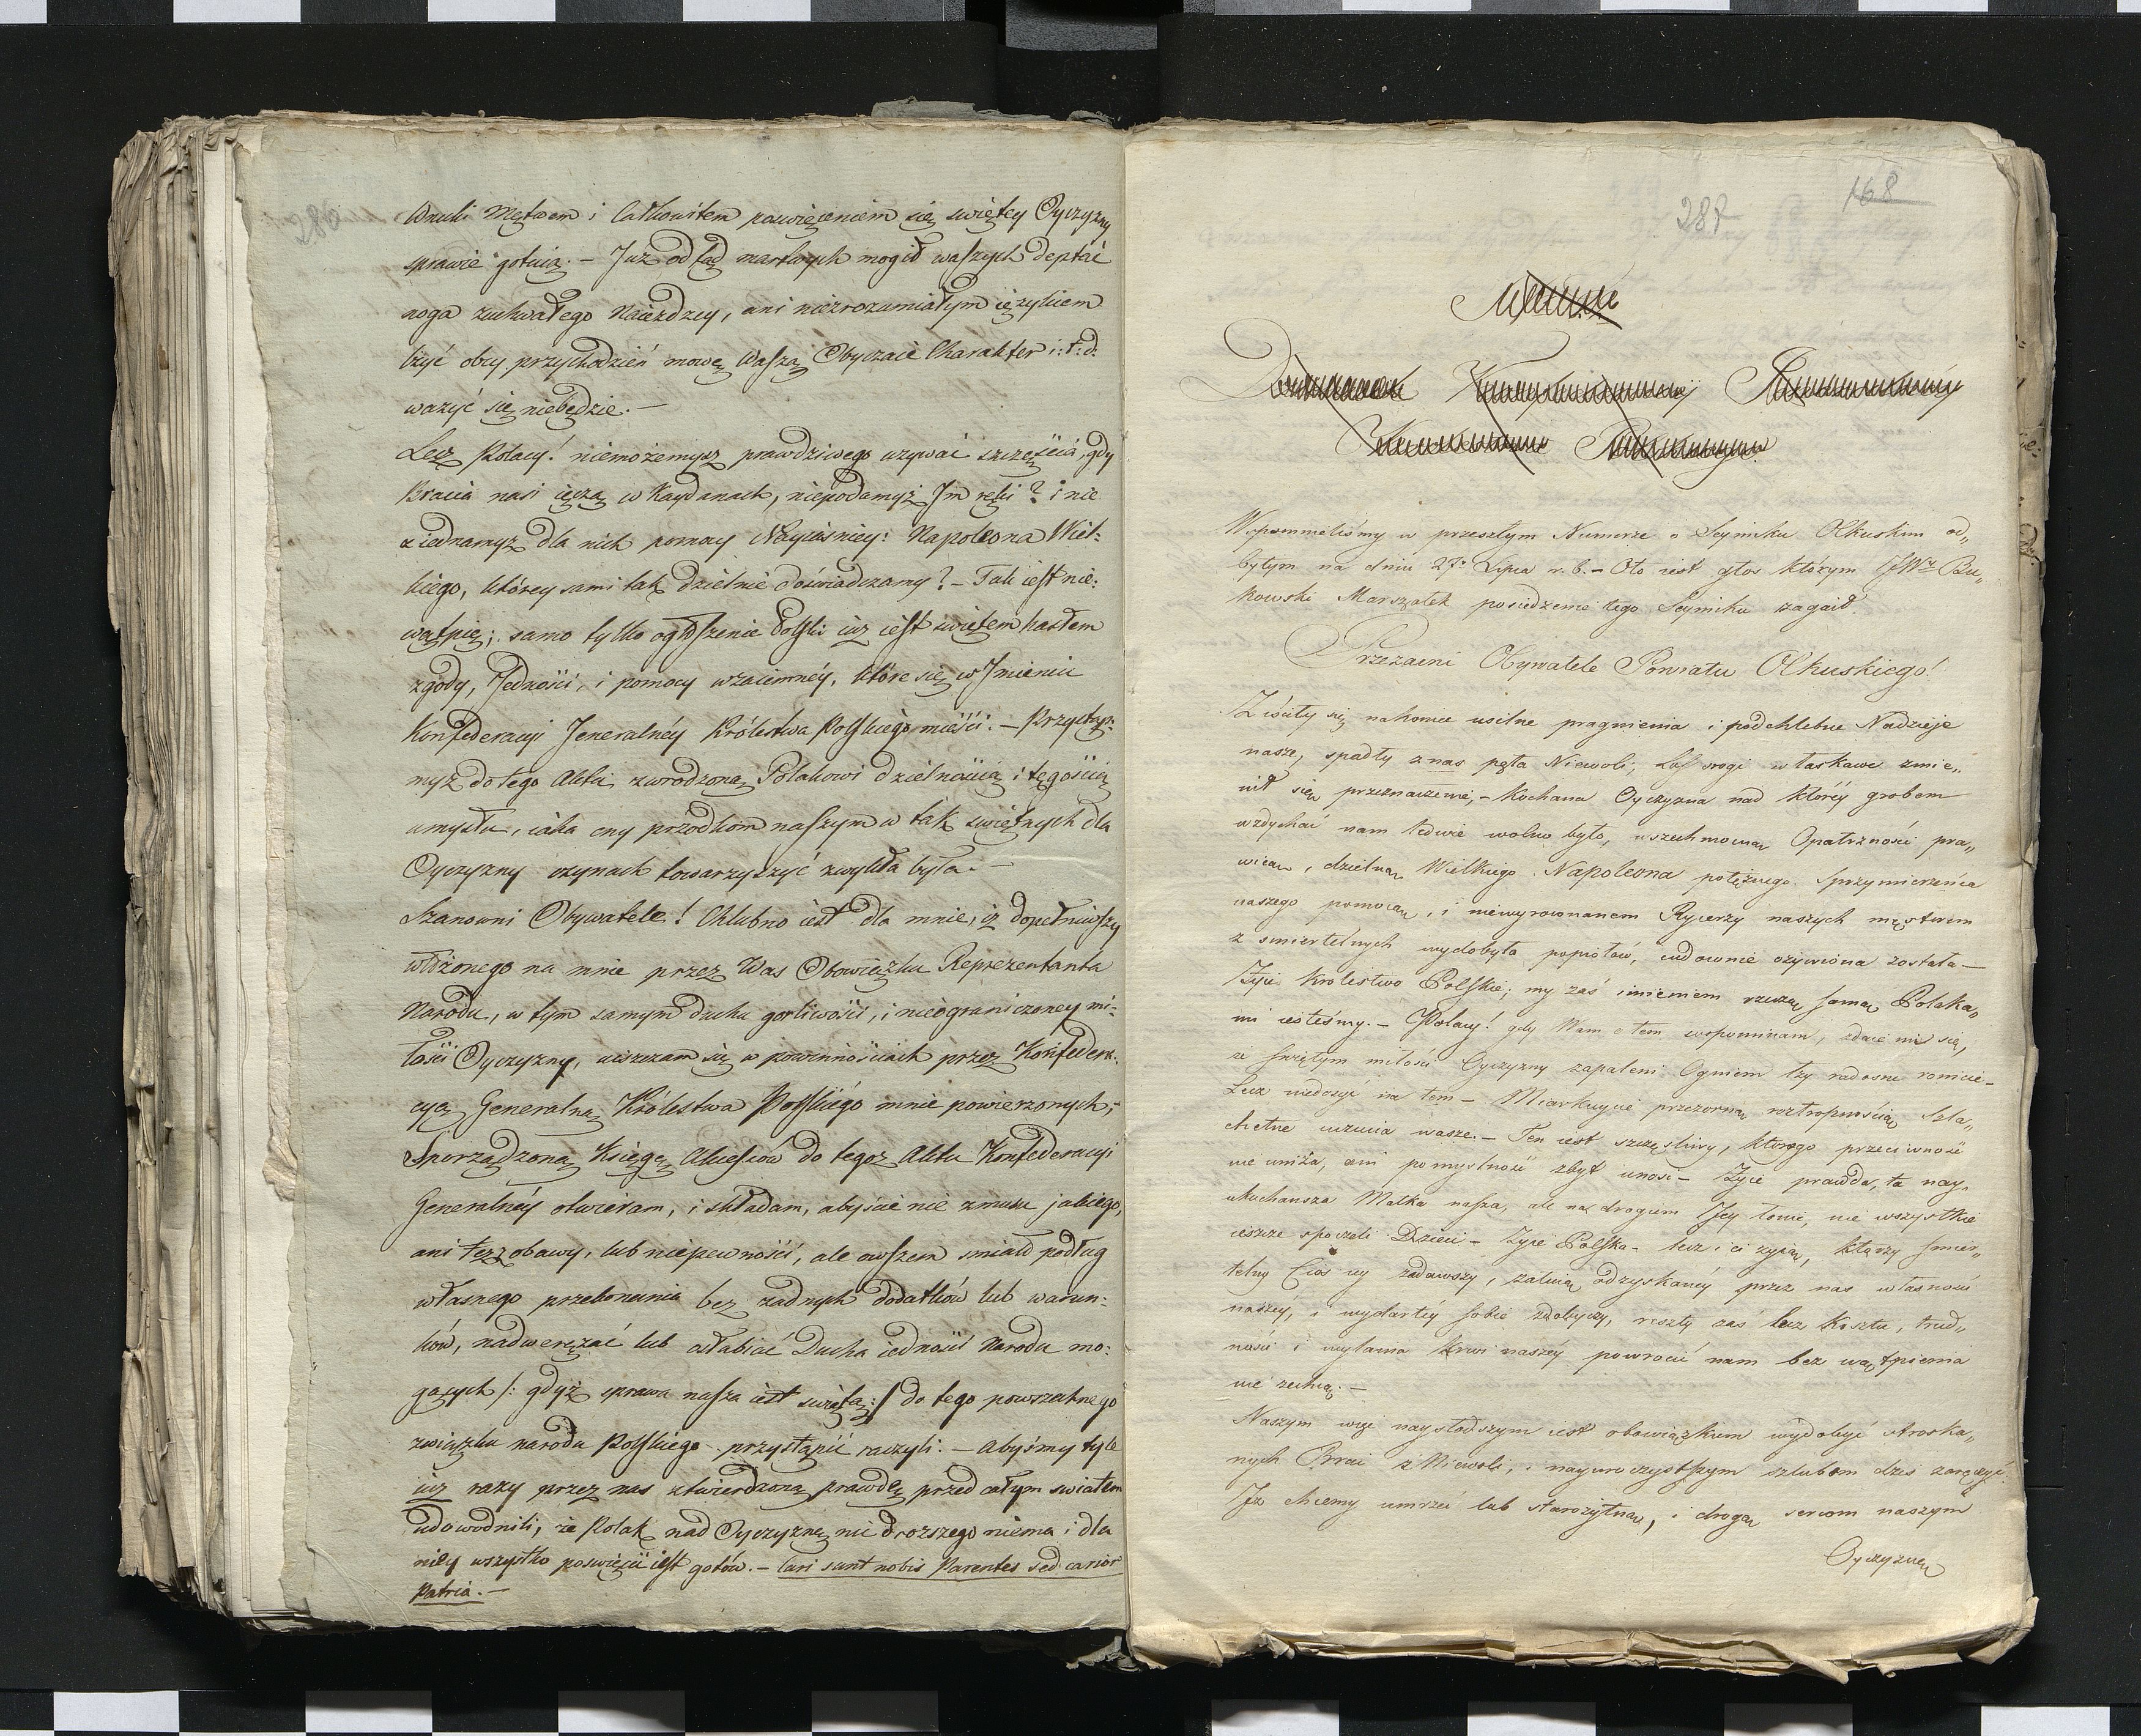 286
Wnuki Męstwem i Całkowitem poswięceniem się swiętey Oyczyzny
sprawie gotuią. – Już odtąd martwych mogił waszych deptać
noga zuchwałego Naiezdzcy, ani niezrozumiałym ięzykiem
lżyć obcy przychodzień mowę Waszą Obyczaie Charakter i: t: d:
ważyć się niebędzie. –
Lecz Polacy! niemożemysz prawdziwego używać szczęścia, gdy
Bracia nasi ięczą w Kaydanach, niepodamyż Jm ręki? i nie
ziednamyż dla nich pomocy Nayiaśniey: Napoleona Wiel:
kiego, którey sami tak dzielnie doświadczamy? – Tak iest nie:
wątpię; samo tylko ogłoszenie Polski iuż iest swiętem hasłem
zgody, Jedności, i pomocy wzaiemnéy, które się w Jmieniu
Konfederacyi Jeneralnéy Królestwa Polskiego mieści. – Przyłącz:
myż do tego Aktu zwrodzoną Polakowi dzielnością i tęgością
umysłu, iaka cny przodkom naszym w tak swiętnych dla
Oyczyzny czynach towarzyszyć zwykła była. –
Szanowni Obywatele! Chlubno iest dla mnie, iż dopełniwszy
włożonego na mnie przez Was Obowiązku Reprezentanta
Narodu, w tym samym duchu gorliwości, i nieograniczoney mi:
łości Oyczyzny, uiszczam się w powinnościach przez Konfedera:
cyą Generalną Królestwa Polskiego mnie powierzonych, –
Sporządzoną Księgę Akcessów do tegoż Aktu Konfederacyi
Generalnéy otwieram, i składam, abyście nie zmusu jakiego,
ani też z obawy, lub niepewności, ale owszem smiało podług
własnego przekonania bez żadnych dodatków lub warun:
ków, nadwerężać lub osłabiać Ducha iedności Narodu mo:
gących /: gdyż sprawa nasza iest swięta :/ do tego powszechnego
związku narodu Polskiego przystąpić raczyli. – Abyśmy tyle
iuż razy przez nas utwierdzoną prawdę przed całym swiatem
udowodnili, że Polak nad Oyczyznę nic droższego niema i dla
niey wszystko poswięcić iest gotów. – Cari sunt nobis Parentes sed carior
Patria. –
168
287
Wspomnieliśmy w przeszłym Numerze o Seymiku Olkuskim od„
bytym na dniu 27. Lipca r. b. – Oto iest głos którym JWny Bu„
kowski Marszałek posiedzenie tego Seymiku zagaił.
Przezacni Obywatele Powiatu Olkuskiego!
Ziściły się nakoniec usilne pragnienia i podchlebne Nadzieje
nasze, spadły z nas pęta Niewoli; los srogi w łaskawe zmie„
nił się przeznaczenie, – Kochana Oyczyzna nad któréy grobem
wzdychać nam ledwie wolno było, wszechmocną Opatrzności pra„
wicą, dzielną Wielkiego Napoleona potężnego Sprzymierzeńca
naszego pomocą, i niewyrownanem Rycerzy naszych męstwem
z smiertelnych wydobyta popiołów, cudownie ożywiona została –
Żyie Krolestwo Polskie; my zaś imieniem rzeczą samą Polaka„
mi iesteśmy. – Polacy! gdy Wam o tem wspominam, zdaie mi się,
że świętym miłości Oyczyzny zapaleni Ogniem łzy radosne ronicie –
Lecz niedosyć na tem – Miarkuycie przezorną roztropnością Szla„
chetne uczucia wasze. – Ten iest szczęśliwy, ktorego przeciwność
nie uniża, ani pomyslność zbyt unosi – Żyie prawda, ta nay„
ukochańsza Matka nasza, ale na drogiem Jey łonie, nie wszystkie
ieszcze spoczęli Dzieci – Żyie Polska – lecz i ci żyią, którzy smier„
telny Cios iey zadawszy, żałuią odzyskanéy przez nas własności
naszéy, i wydartéy sobie zdobyczy, reszty zaś bez Kosztu, trud„
ności i wylania Krwi naszéy powrócić nam bez wątpienia
nie zechcą. –
Naszym więc naysłodszym iest obowiązkiem wydobyć stroska„
nych Braci z Niewoli, i nayuroczystszym szlubem dziś zaręczyć.
Iż chcemy umrzeć lub starożytną, i drogą sercom naszym
Oyczyznę